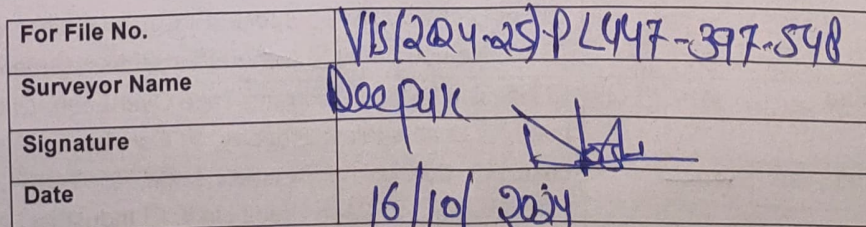 For File No. VIS(2024-25)-PL447-397-548
Surveyor Name Deepak
Signature
Date 16/10/2024